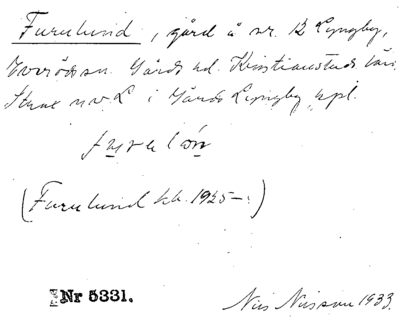 Furulund, gård å nr. 12 Lyngby,
Everöds sn. Gärds hd. Kristianstads län.
Strax n v L i Gärds Lyngby spl.
(Furulund kb. 1925-:)
Nr 5331.
Nils Nilsson 1933.